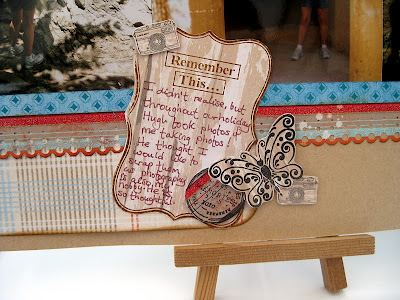 Remember
This...
I didn't realise, but
throughout our holiday
Hugh took photos of
me taking photos.
He thought I
would like to
scrap them
as photography
is also my
hobby. He is
so thoughtful
XOXO